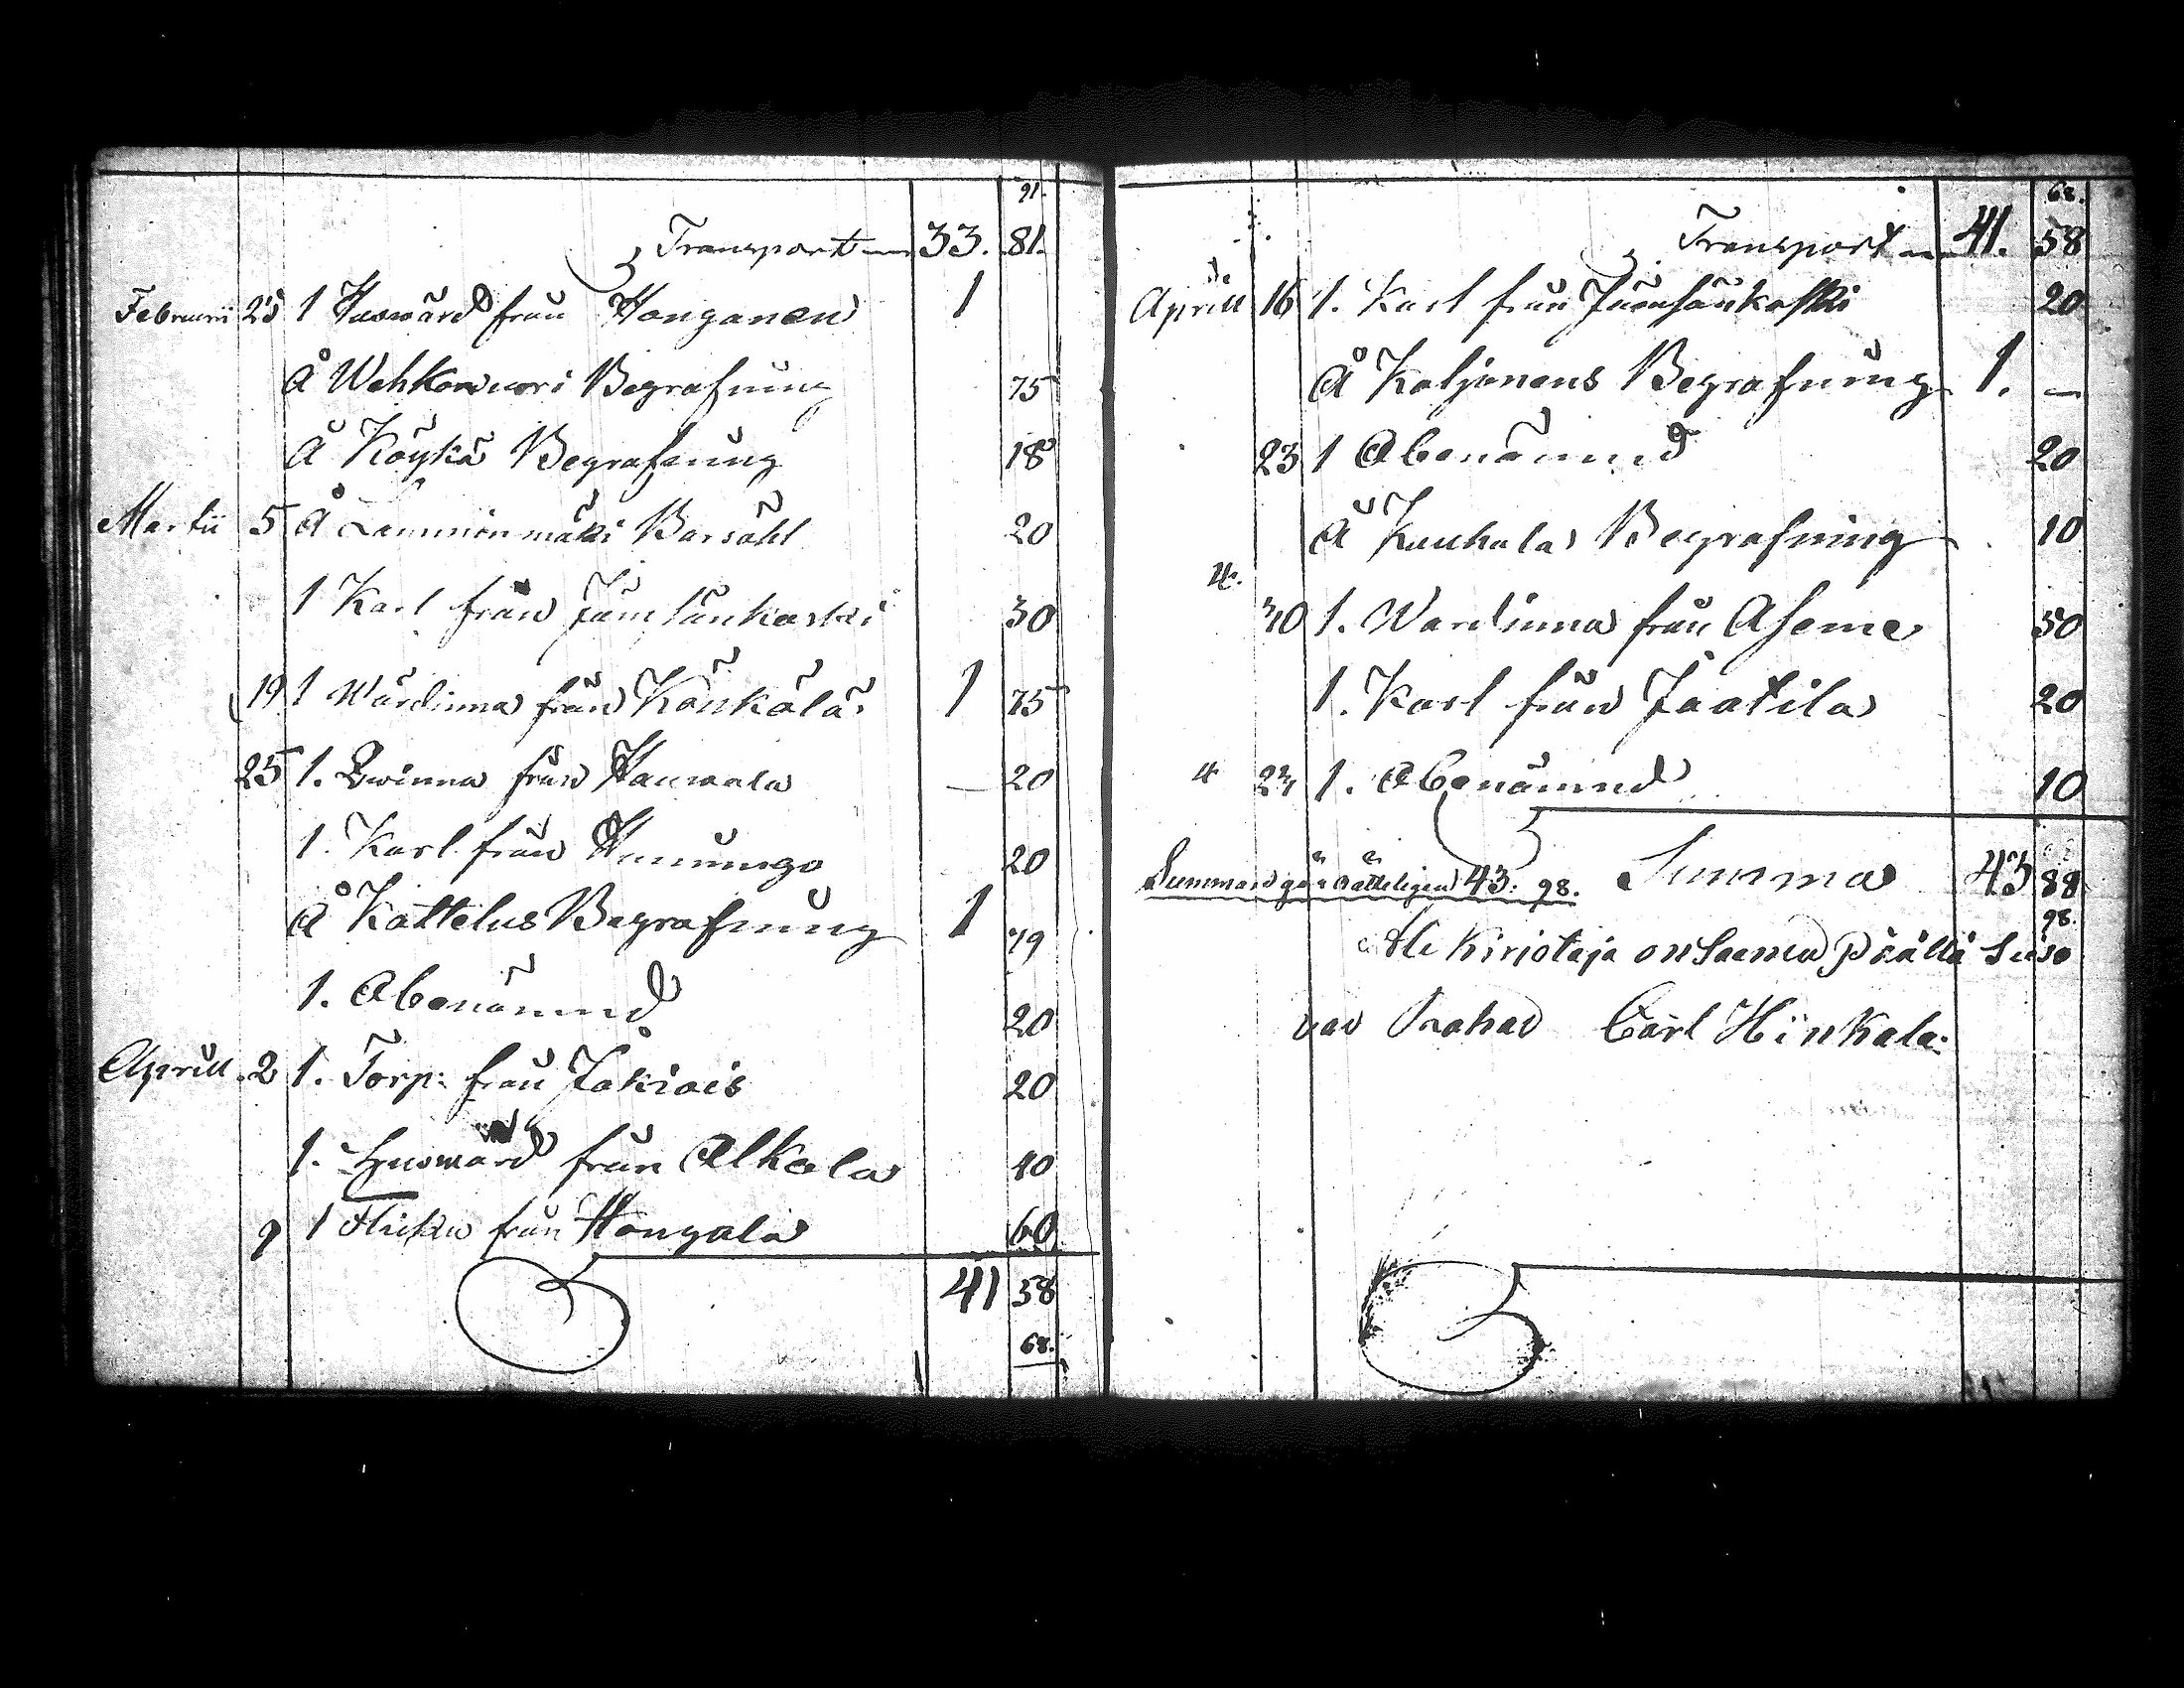 91.
Transport 33. 81.
Februarii 25 1 Huswärd från Honganen 1
Å Wehkawuori Begrafning 75
Å Köykä Begrafning 18
Martii 5 Å Lamminmäki Barsöhl 20
1 Karl från Jämsänkoski 30
19 1 Wärdinna från Könkölä 1 75
25 1. Qwinna från Haumala 20
1. Karl från 20
Å Kattelus Begrafning 1 79
1. Obenämnd 20
Aprill 2 1. Torp: från Jokiois 20
1. Huswärd från Alkula 40
9 1 Flicka från Hongola 60
41 58
68.
68.
Transport 41. 58
Aprill 16 1. Karl från Jämsänkoski 20
Å Kaljonens Begrafning 1. —
23 1 Obenämnd 20
Å Kauhala Begrafning 10
30 1. Wardinna från Aseme 50
1. Karl från Jaatila 20
1. Obenämnd 10
Summan gör rätteligen 43: 98. Summa 43 88
98.
Kirjotaja on Saanu Päältä Seiso
van Rahan Carl Hinkala: